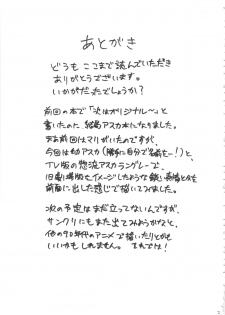 あとがき
どうも ここまで読んでいただき
ありがとうございます。
いかがだったでしょうか?
前回の本で「次はオリジナル〜」と
書いたのに、結局アスカ本になりました。
まあ前回はマリがいたのですが、
今回は幼アスカ(勝手に自分で名前を…!)と、
TV版の惣流アスカラングレーで、
旧劇場版をイメージしたような
前面に出した感じで描いてみました。
次の予定はまだ立ってないんですが、
サンクリにもまた出てみようかなと、
他の90年代のアニメで描いたりとかも
いいかもしれません。それでは!